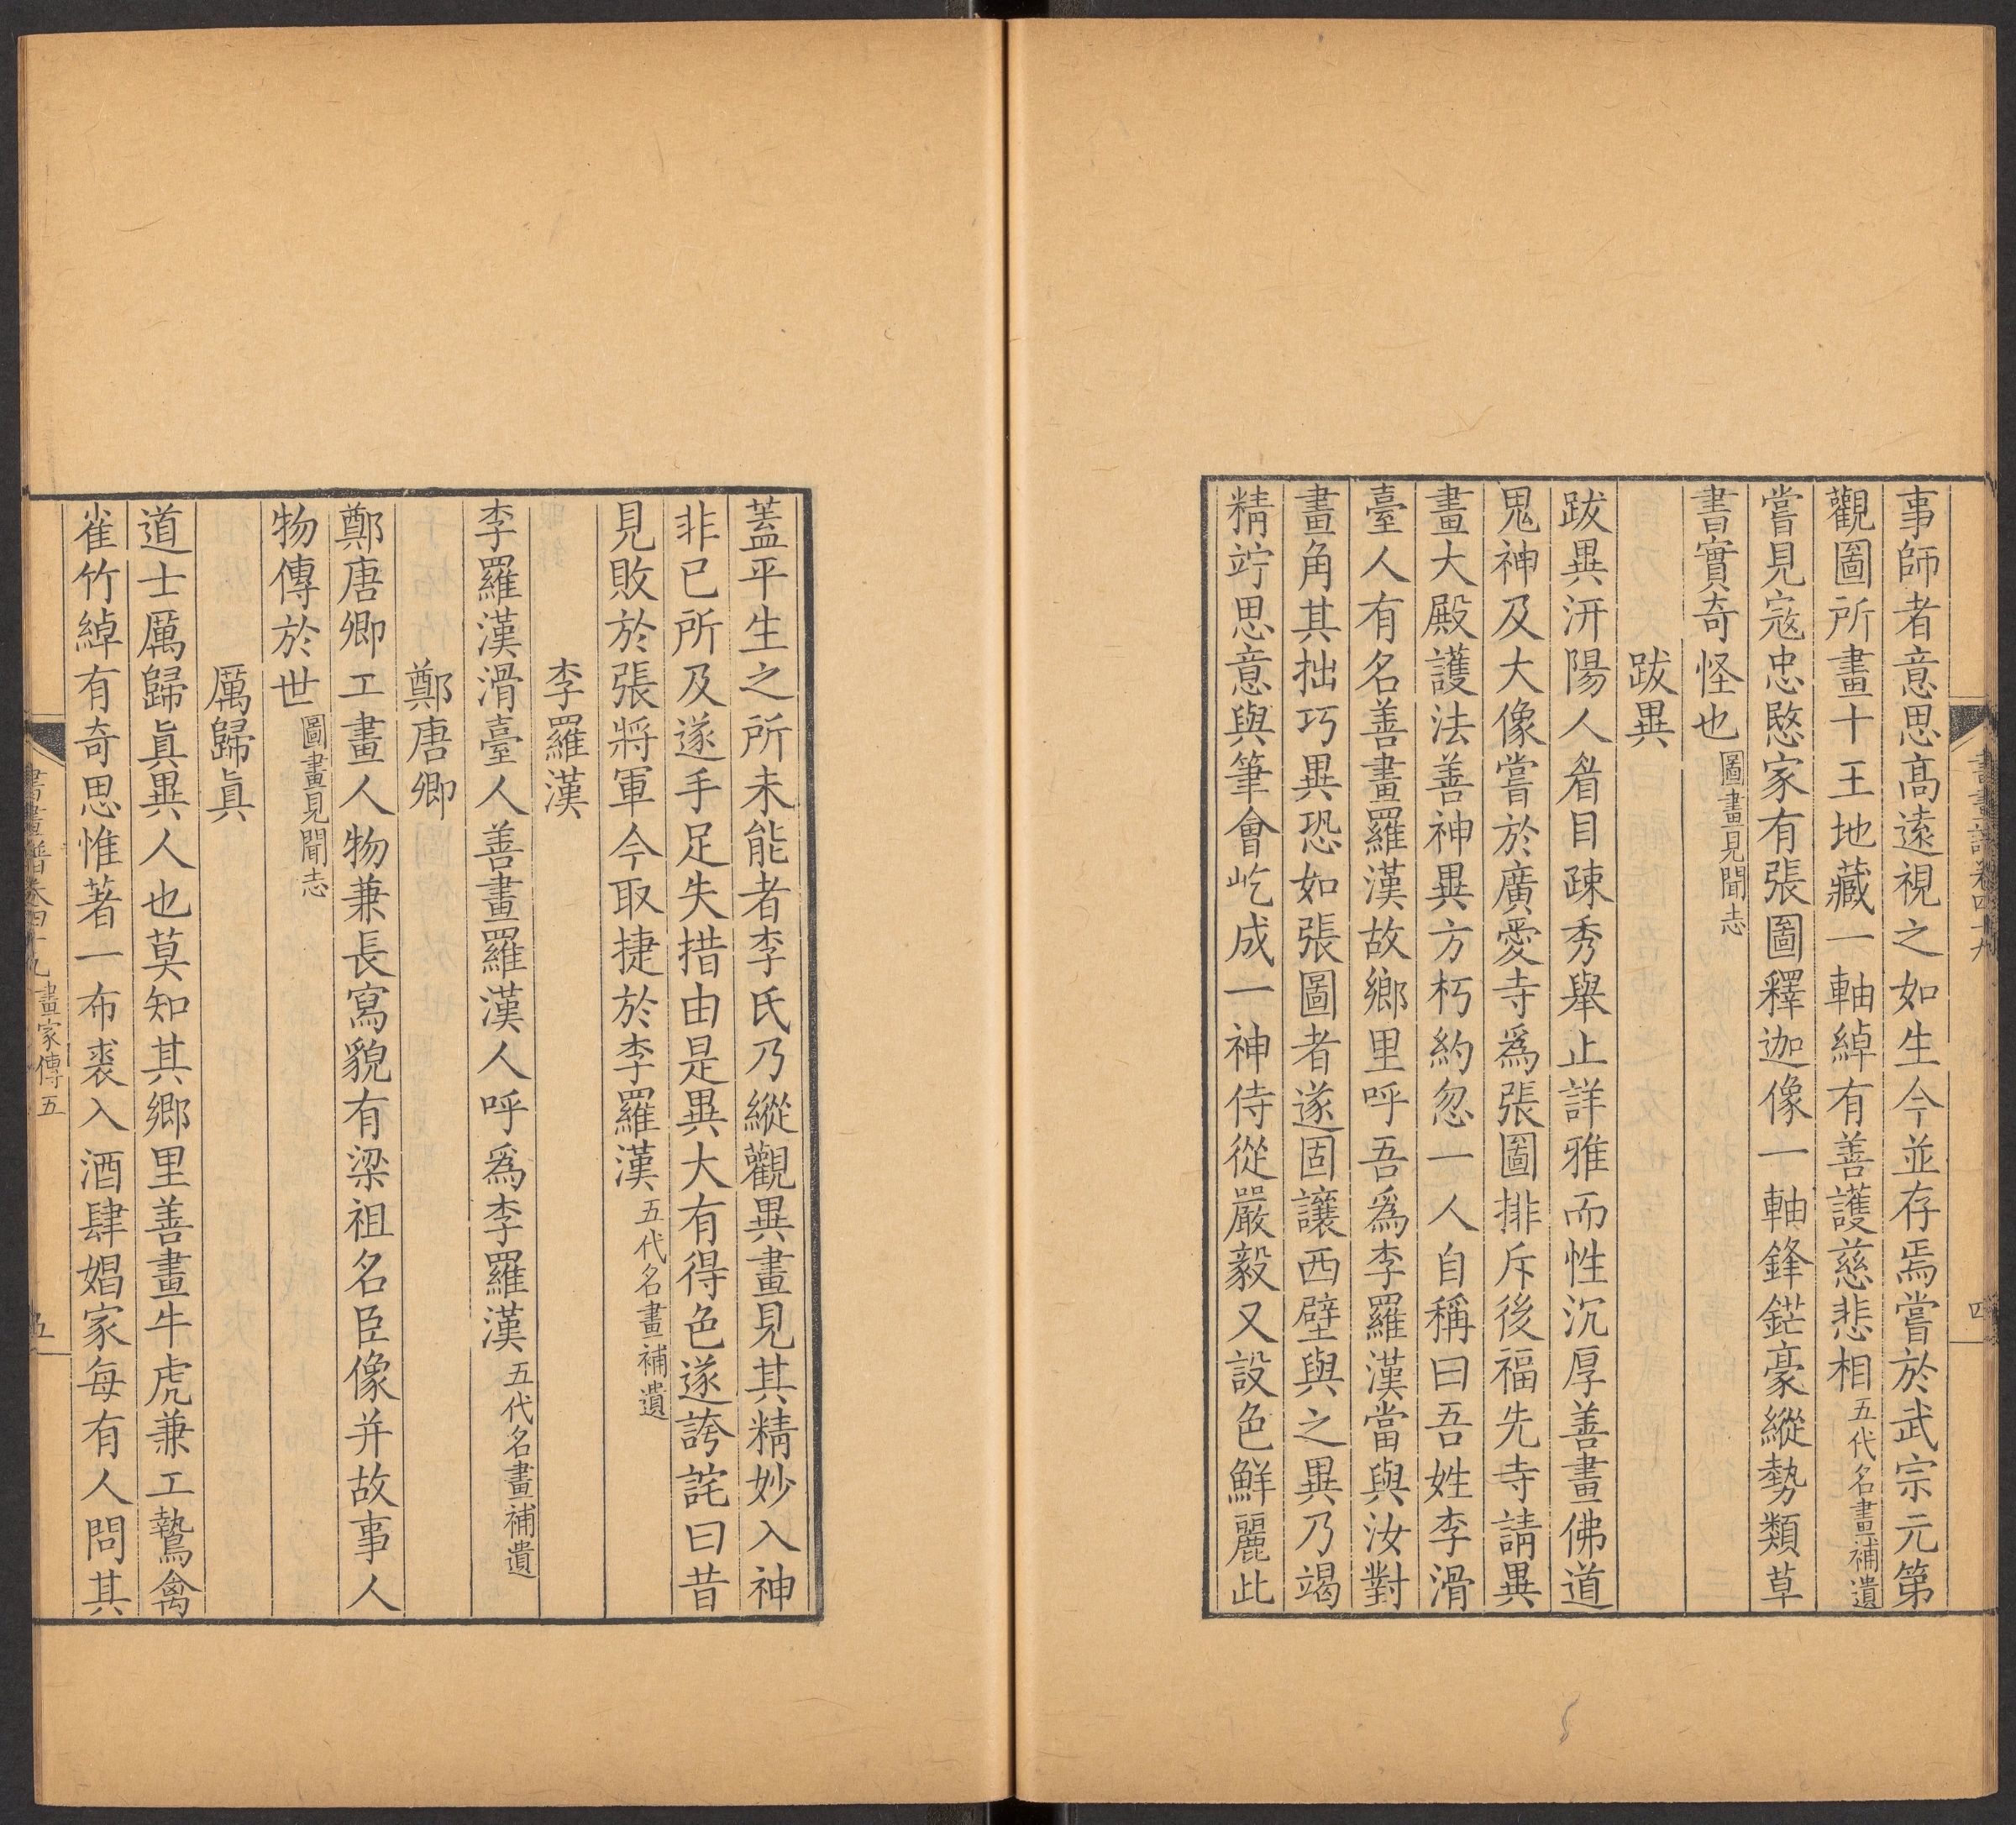 事師者意思高遠視之如生今並存焉嘗於武宗元第
觀圖所畫十王地藏一軸綽有善護慈悲相五代名畫補遺
嘗見寇忠愍家有張圖釋迦像一軸鋒鋩豪縱勢類草
書實奇怪也圖畫見聞志
跋異
跋異汧陽人眉目疎秀舉止詳雅而性沉厚善畫佛道
鬼神及大像嘗於廣愛寺爲張圖排斥後福先寺請異
畫大殿護法善神異方朽約忽一人自稱曰吾姓李滑
臺人有名善畫羅漢故鄉里呼吾爲李羅漢當與汝對
畫角其拙巧異恐如張圖者遂固讓西壁與之異乃竭
精竚思意與筆會屹成一神侍從嚴毅又設色鮮麗此
蓋平生之所未能者李氏乃縱觀異畫見其精妙入神
非已所及遂手足失措由是異大有得色遂誇詫曰昔
見敗於張將軍今取捷於李羅漢五代名畫補遺
李羅漢
李羅漢滑臺人善畫羅漢人呼爲李羅漢五代名畫補遺
鄭唐卿
鄭唐卿工畫人物兼長寫貌有梁祖名臣像并故事人
物傳於世圖畫見聞志
厲歸眞
道士厲歸眞異人也莫知其鄉里善畫牛虎兼工鷙禽
雀竹綽有奇思惟著一布裘入酒肆娼家每有人問其
書畫譜卷四十九 畫家傳五 五